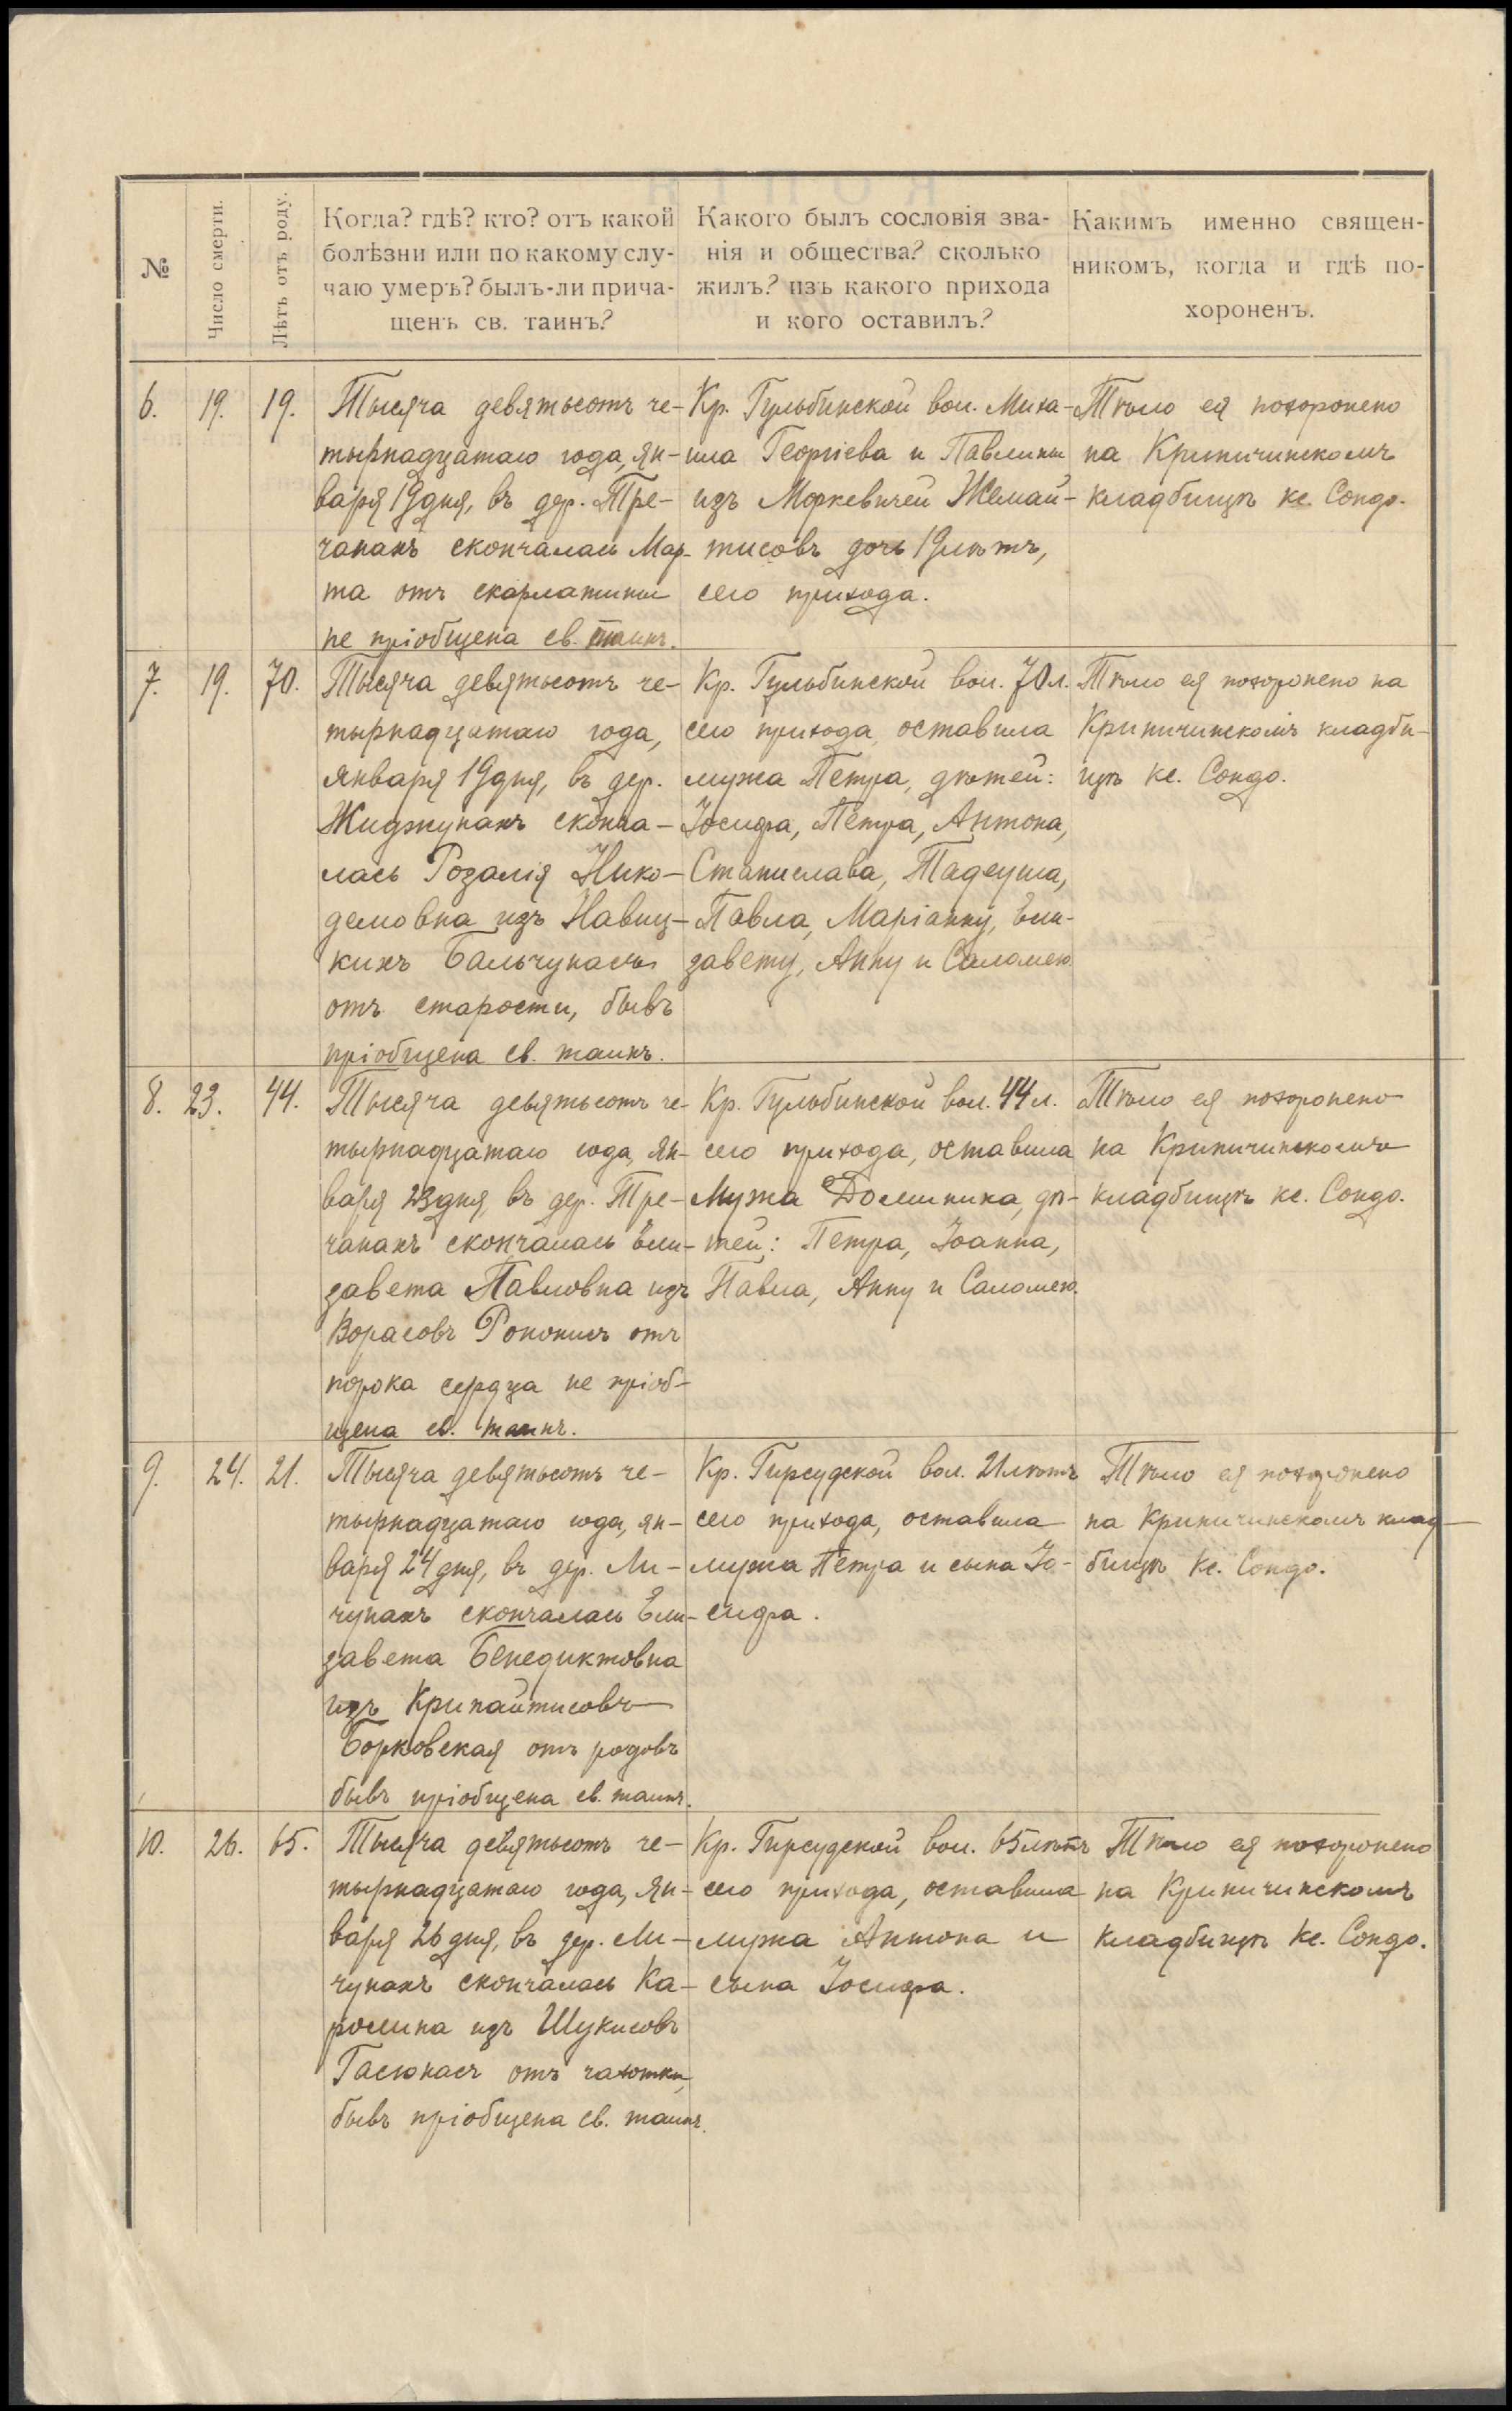 №
Число смерти.
Лѣтъ отъ роду.
Когда? гдѣ? кто? отъ какой
болѣзни или по какому слу-
чаю умеръ? былъ-ли прича-
щенъ св. таинъ?
Какого былъ сословія зва-
нія и общества? сколько
жилъ? изъ какого прихода
и кого оставилъ?
Какимъ именно священ-
никомъ, когда и гдѣ по-
хороненъ.
6.
19.
19.
Тысяча девятьсотъ че-
тырнадцатаго года, ян-
варя 19 дня, въ дер. Тре-
чанахъ скончалась Мар-
та отъ скарлатины
не пріобщена св. таинъ.
Кр. Гульбинской вол. Миха-
ила Георгіева и Павлины
изъ Моркевичей Жемай-
тисовъ дочь 19 лѣтъ,
сего прихода.
Тѣло ея похоронено
на Криничинскомъ
кладбищѣ кс. Сондо.
7.
19.
70.
Тысяча девятьсотъ че-
тырнадцатаго года,
января 19 дня, въ дер.
Жиджунахъ сконча-
лась Розалія Нико-
демовна изъ Навиц-
кихъ Бальчунасъ
отъ старости, бывъ
пріобщена св. таинъ.
Кр. Гульбинской вол. 70 л.
сего прихода, оставила
мужа Петра, дѣтей:
Іосифа, Петра, Антона,
Станислава, Тадеуша,
Павла, Маріанну, Ели-
завету, Анну и Саломею
Тѣло ея похоронено на
Криничинскомъ кладби-
щѣ кс. Сондо.
8.
23.
44.
Тысяча девятьсотъ че-
тырнадцатаго года, ян-
варя 23 дня, въ дер. Тре-
чанахъ скончалась Ели-
завета Павловна изъ
Ворасовъ Рононисъ отъ
порока сердца не пріоб-
щена св. таинъ.
Кр. Гульбинской вол. 44 л.
сего прихода, оставила
мужа Доминика, дѣ-
тей: Петра, Іоанна,
Павла, Анну и Саломею.
Тѣло ея похоронено
на Криничинскомъ
кладбищѣ кс. Сондо.
9.
24.
21.
Тысяча девятьсотъ че-
тырнадцатаго года, ян-
варя 24 дня, въ дер. Ли-
чунахъ скончалась Ели-
завета Бенедиктовна
изъ Крипайтисовъ
Борковская отъ родовъ
бывъ пріобщена св. таинъ.
Кр. Гирсудской вол. 21 лѣтъ
сего прихода, оставила
мужа Петра и сына Іо-
сифа.
Тѣло ея похоронено
на Криничинскомъ клад-
бищѣ кс. Сондо.
10.
26.
65.
Тысяча девятьсотъ че-
тырнадцатаго года, ян-
варя 26 дня, въ дер. Ли-
чунахъ скончалась Ка-
ролина изъ Шукисовъ
Гасюнасъ отъ чахотки,
бывъ пріобщена св. таинъ.
Кр. Гирсудской вол. 65 лѣтъ
сего прихода, оставила
мужа Антона и
сына Іосифа.
Тѣло ея похоронено
на Криничинскомъ
кладбищѣ кс. Сондо.